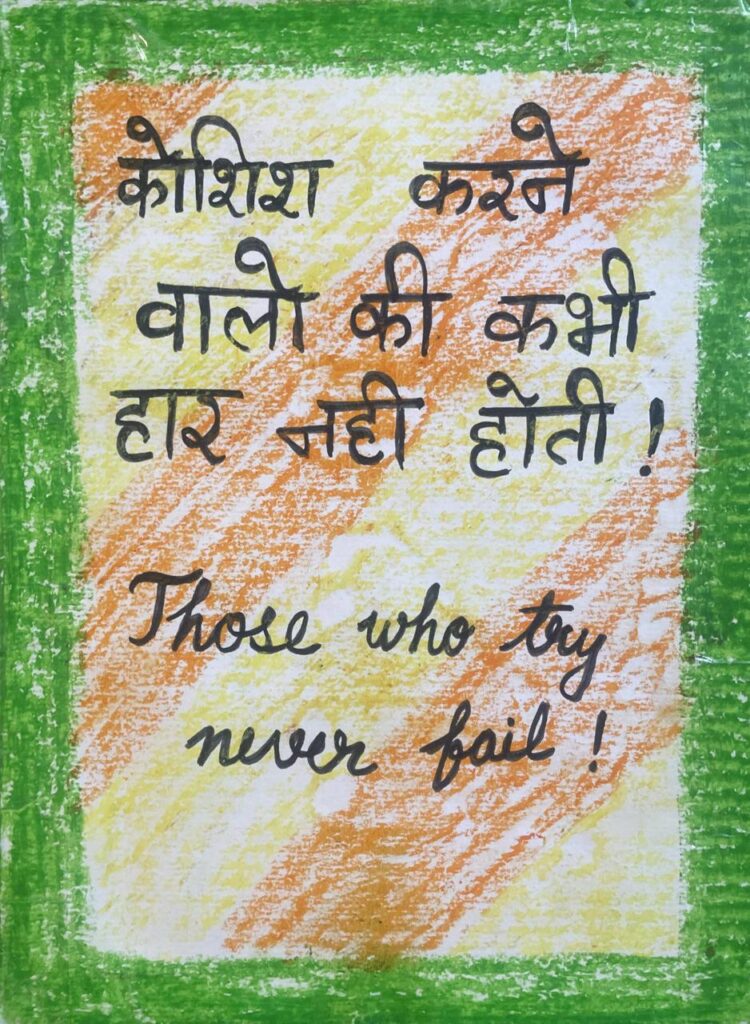 कोशिश करने
वालो की कभी
हार नही होती !
Those who try
never fail !